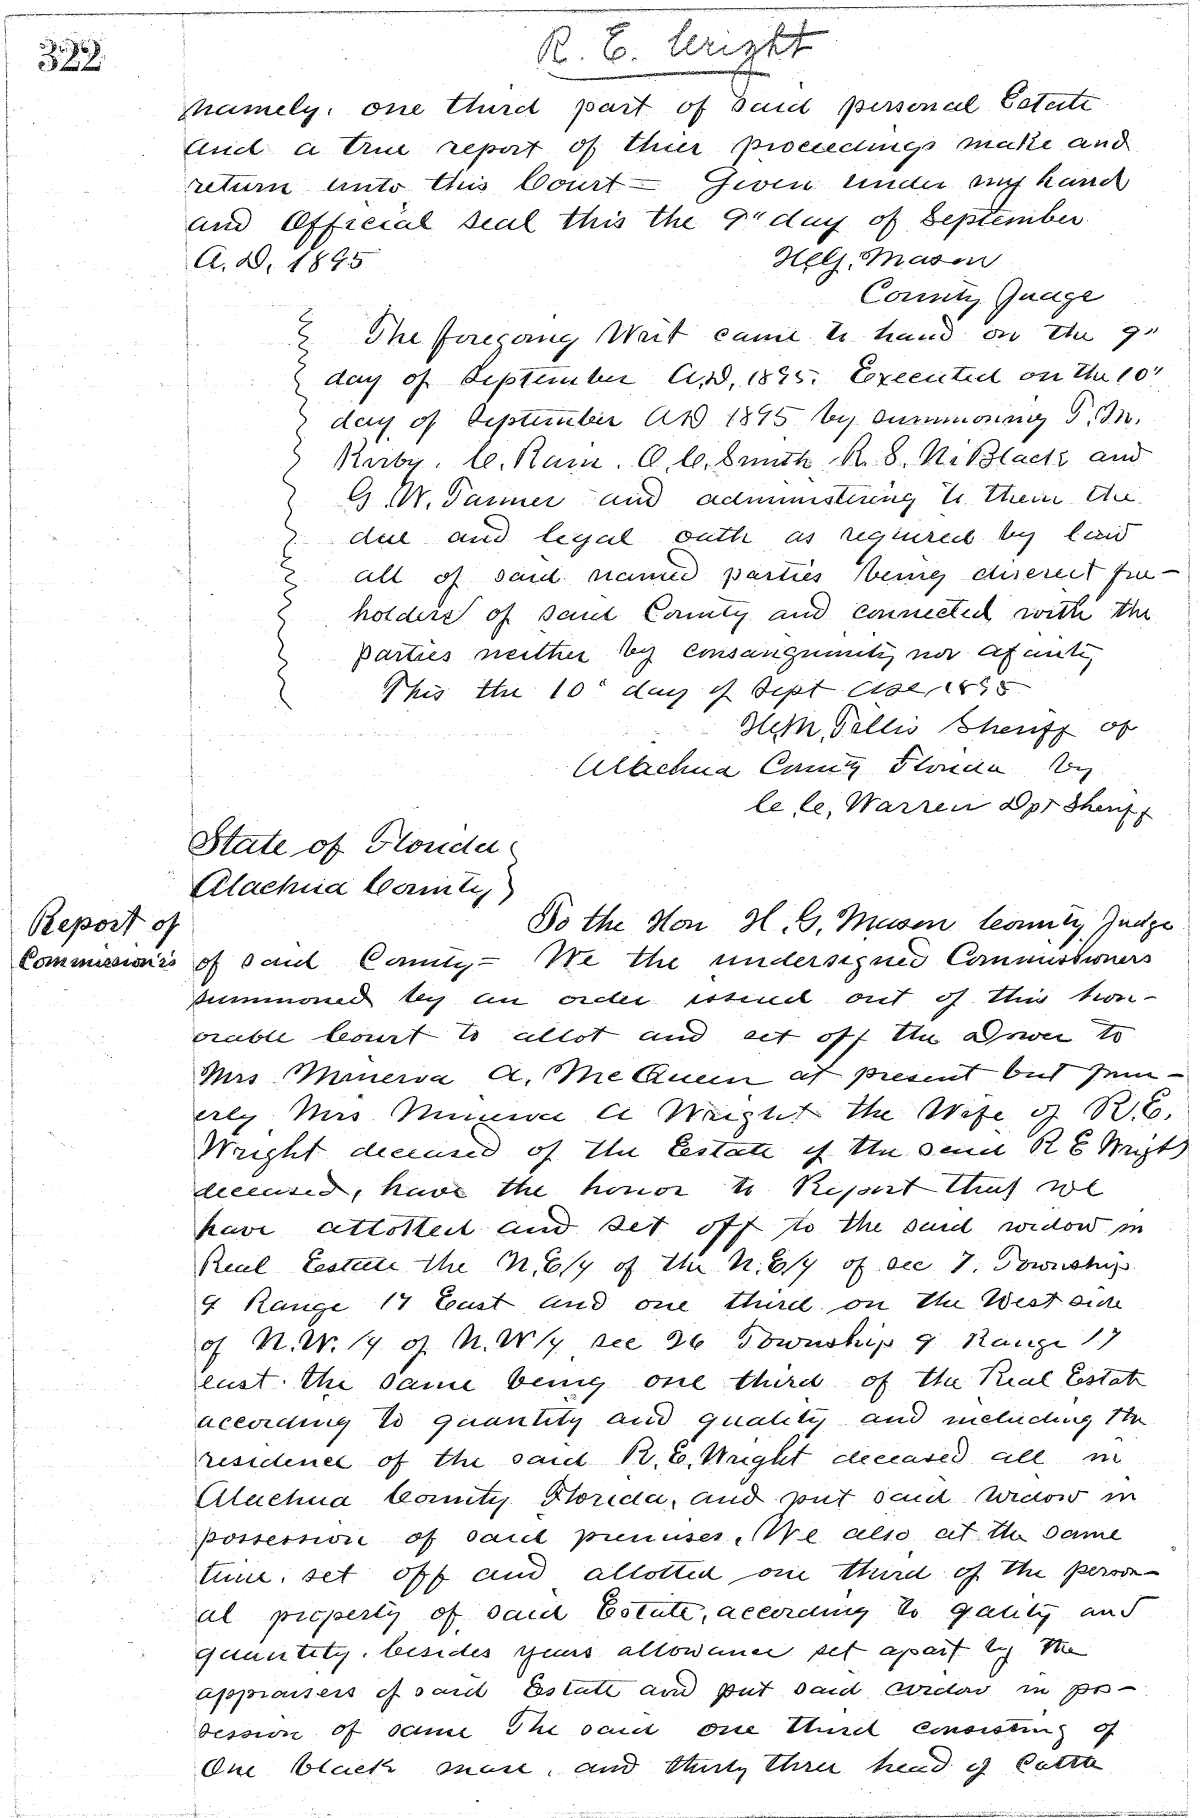 322
R. E. Wright
namely. one third part of said personal Estate
and a true report of thier proceedings make and
return unto this Court = Given under my hand
and Official seal this the 9" day of September
A. D. 1895 H. G. Mason
County Judge
The foregoing Writ came to hand on the 9"
day of September A.D, 1895. Executed on the 10"
day of September AD 1895 by summoning T. M.
Kirby. C. Rain. O. C. Smith R. S. NiBlack and
G. W. Tanner and administering to them the
due and legal oath as required by law
all of said named parties being discreet free-
holders of said County and connected with the
parties neither by consanguinity nor afinity
This the 10" day of Sept 1895
H. M, Tillis Sheriff of
Alachua County Florida by
C. C, Warren Dpt Sheriff
State of Florida
Alachua County
To the Hon H. G, Mason County Judge
Report of
Commissioners
of said County = We the undersigned Commissioners
summoned by an order issued out of this hon-
orable Court to allot and set off the Dower to
Mrs Minerva A. McQueen at present but form-
erly Mrs Minerva A Wright the Wife of R. E.
Wright deceased of the Estate of the said R E Wright
deceased, have the honor to Report that we
have allotted and set off to the said widow in
Real Estate the N. E/4 of the N. E/4 of sec 7. Township
9 Range 17 East and one third on the West side
of N. W. /4 of N. W/4 sec 26 Township 9 Range 17
east. the same being one third of the Real Estate
according to quantity and quality and including the
residence of the said R. E. Wright deceased all in
Alachua County Florida, and put said widow in
possession of said premises. We also at the same
time. set off and allotted one third of the person-
al property of said Estate, according to qality and
quantity. besides years allowance set apart by the
appraisers of said Estate and put said widow in pos-
session of same The said one third consisting of
One black mare, and thirty three head of Cattle